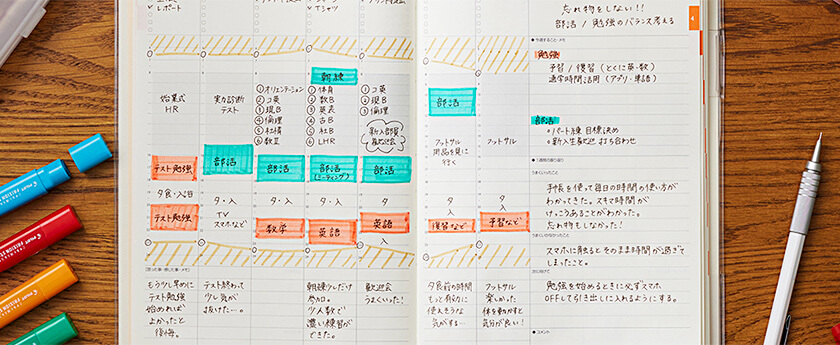 レポート
Tシャツ
始業式
HR
テスト勉強
夕食・入浴
テスト勉強
もう少し早めに
テスト勉強
始めれば
よかったと
後悔。
実力診断
テスト
部活
夕・入
TV
スマホなど
テスト終わって
少し気が
抜けた…。
①オリエンテーション
②コ英
③現B
④倫理
部活
夕・入
数学
朝練
①体育
②数B
③英表
④古B
⑤社B
⑥LHR
部活
(ミーティング)
夕・入
英語
朝練少しだけ
参加。
少人数で
濃い練習が
できた。
①コ英
②現B
③倫理
新入部員
歓迎会
部活
夕
入
英語
歓迎会
うまくいった!
部活
フットサル
用品を見に
行く
夕
入
復習など
夕食前の時間
もっと有効に
使えそうな
気がする…
フットサル
夕
入
予習など
フットサル
楽しかった
体を動かすと
気分が良い!
忘れ物をしない!!
部活/勉強のバランス考える
4
勉強
予習/復習(とくに英・数)
通学時間活用(アプリ・単語)
部活
パート練 目標決め
新入生歓迎 打ち合わせ
うまくいったこと
手帳を使って毎日の時間の使い方が
わかってきた。スキマ時間が
けっこうあることがわかった。
忘れ物もしなかった!
うまくいかなかったこと
スマホに触るとそのまま時間が過ぎて
しまったこと。
勉強を始めるときに必ずスマホ
OFFして引き出しに入れるようにする。
コメント
PILOT FRIXION
PILOT FRIXION